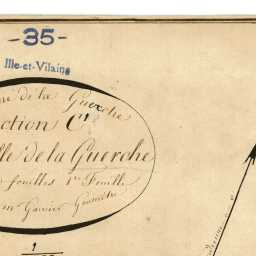 -35-
Ille-et-Vilaine
de la Guerche
ction C
lle de la Guerche
feuilles 1re Feuille
Garnier Géomètre
1